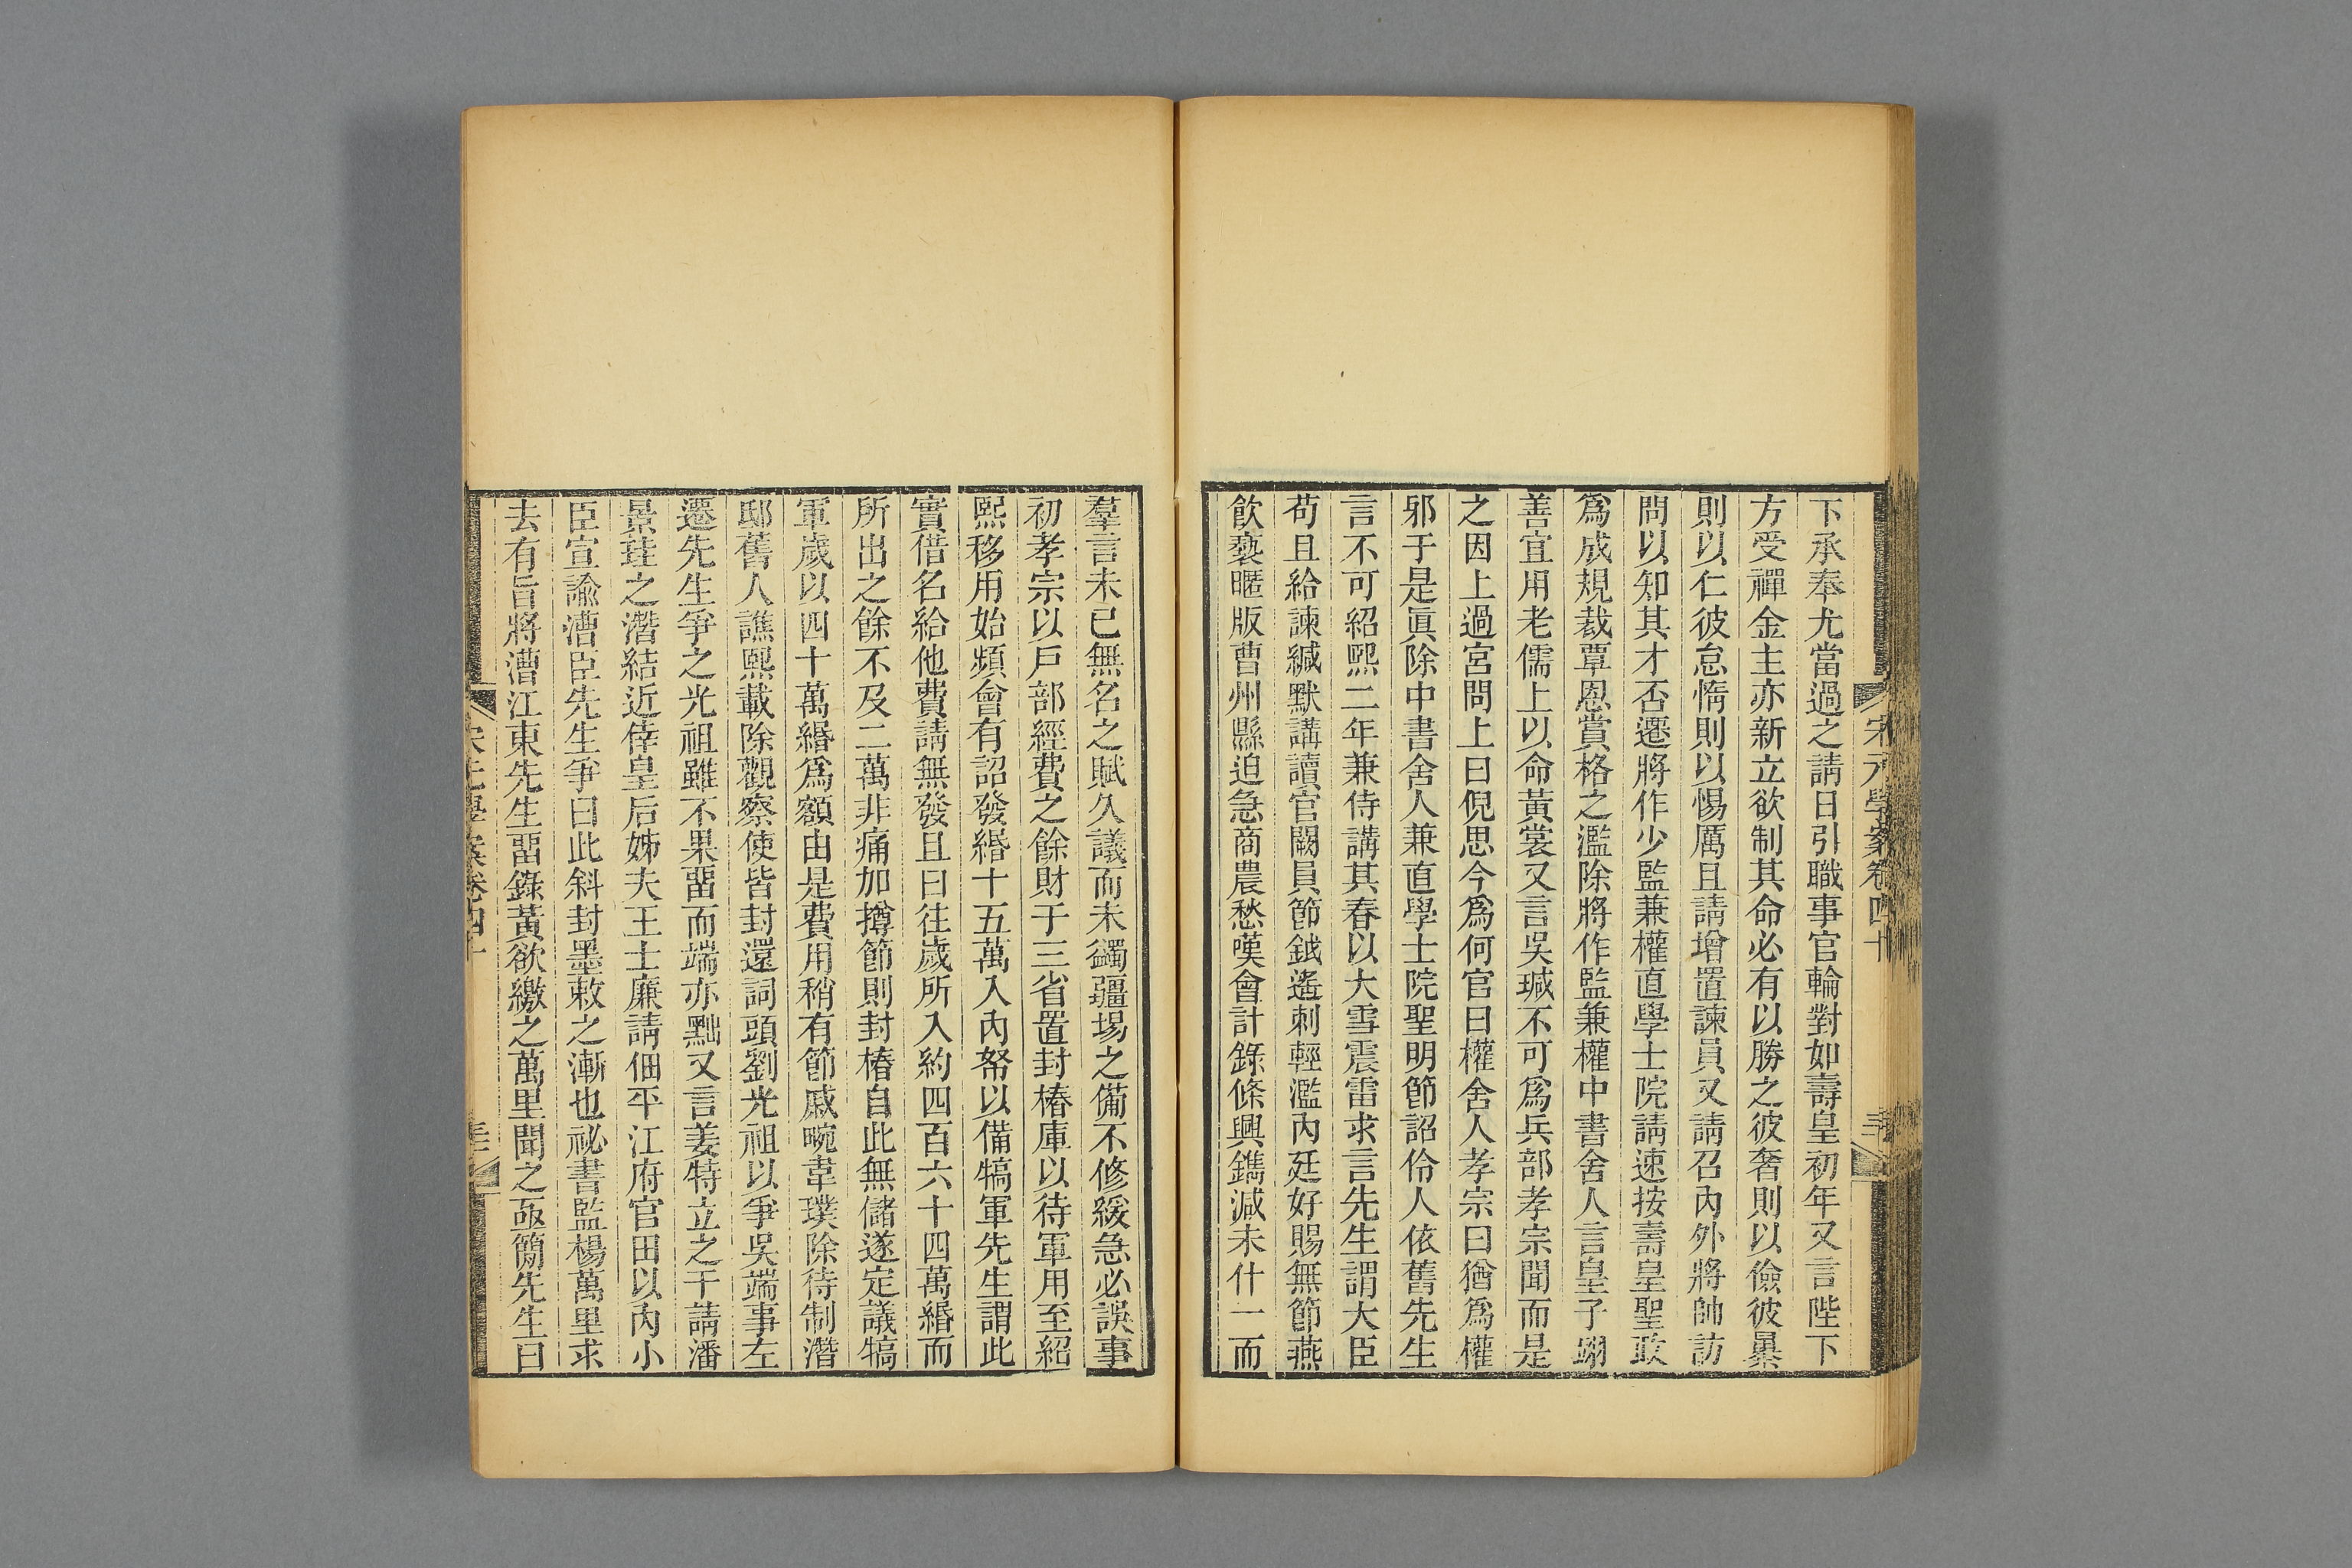 宋元學案卷四十
下承奉尤當過之請日引職事官輪對如壽皇初年又言陛下
方受禪金主亦新立欲制其命必有以勝之彼奢則以儉彼暴
則以仁彼怠惰則以惕厲且請增置諫員又請召內外將帥訪
問以知其才否遷將作少監兼權直學士院請速按壽皇聖政
爲成規裁覃恩賞格之濫除將作監兼權中書舍人言皇子
善宜用老儒上以命黃裳又言吳瑊不可爲兵部孝宗聞而是
之因上過宮問上曰倪思今爲何官曰權舍人孝宗曰猶爲權
邪于是眞除中書舍人兼直學士院聖明節詔伶人依舊先生
言不可紹熙二年兼侍講其春以大雪震雷求言先生謂大臣
苟且給諫緘默講讀官闕員節鉞遙刺輕濫內廷好賜無節燕
飮褻暱版曹州縣迫急商農愁嘆會計錄條興鐫減未什一而
羣言未已無名之賦久議而未蠲疆埸之備不修緩急必誤事
初孝宗以戸部經費之餘財于三省置封樁庫以待軍用至紹
熙移用始頻會有詔發緡十五萬入內帑以備犒軍先生謂此
實借名給他費請無發且曰往歲所入約四百六十四萬緡而
所出之餘不及二萬非痛加撙節則封樁自此無儲遂定議犒
軍歲以四十萬緡爲額由是費用稍有節戚畹韋璞除待制潛
邸舊人譙熙載除觀察使皆封還詞頭劉光祖以爭吳端事左
遷先生爭之光祖雖不果畱而端亦黜又言姜特立之干請潘
景珪之潛結近倖皇后姊夫王士廉請佃平江府官田以內小
臣宣諭漕臣先生爭曰此斜封墨敕之漸也祕書監楊萬里求
去有旨將漕江東先生畱錄黃欲繳之萬里聞之亟簡先生曰
宋元學案卷四十